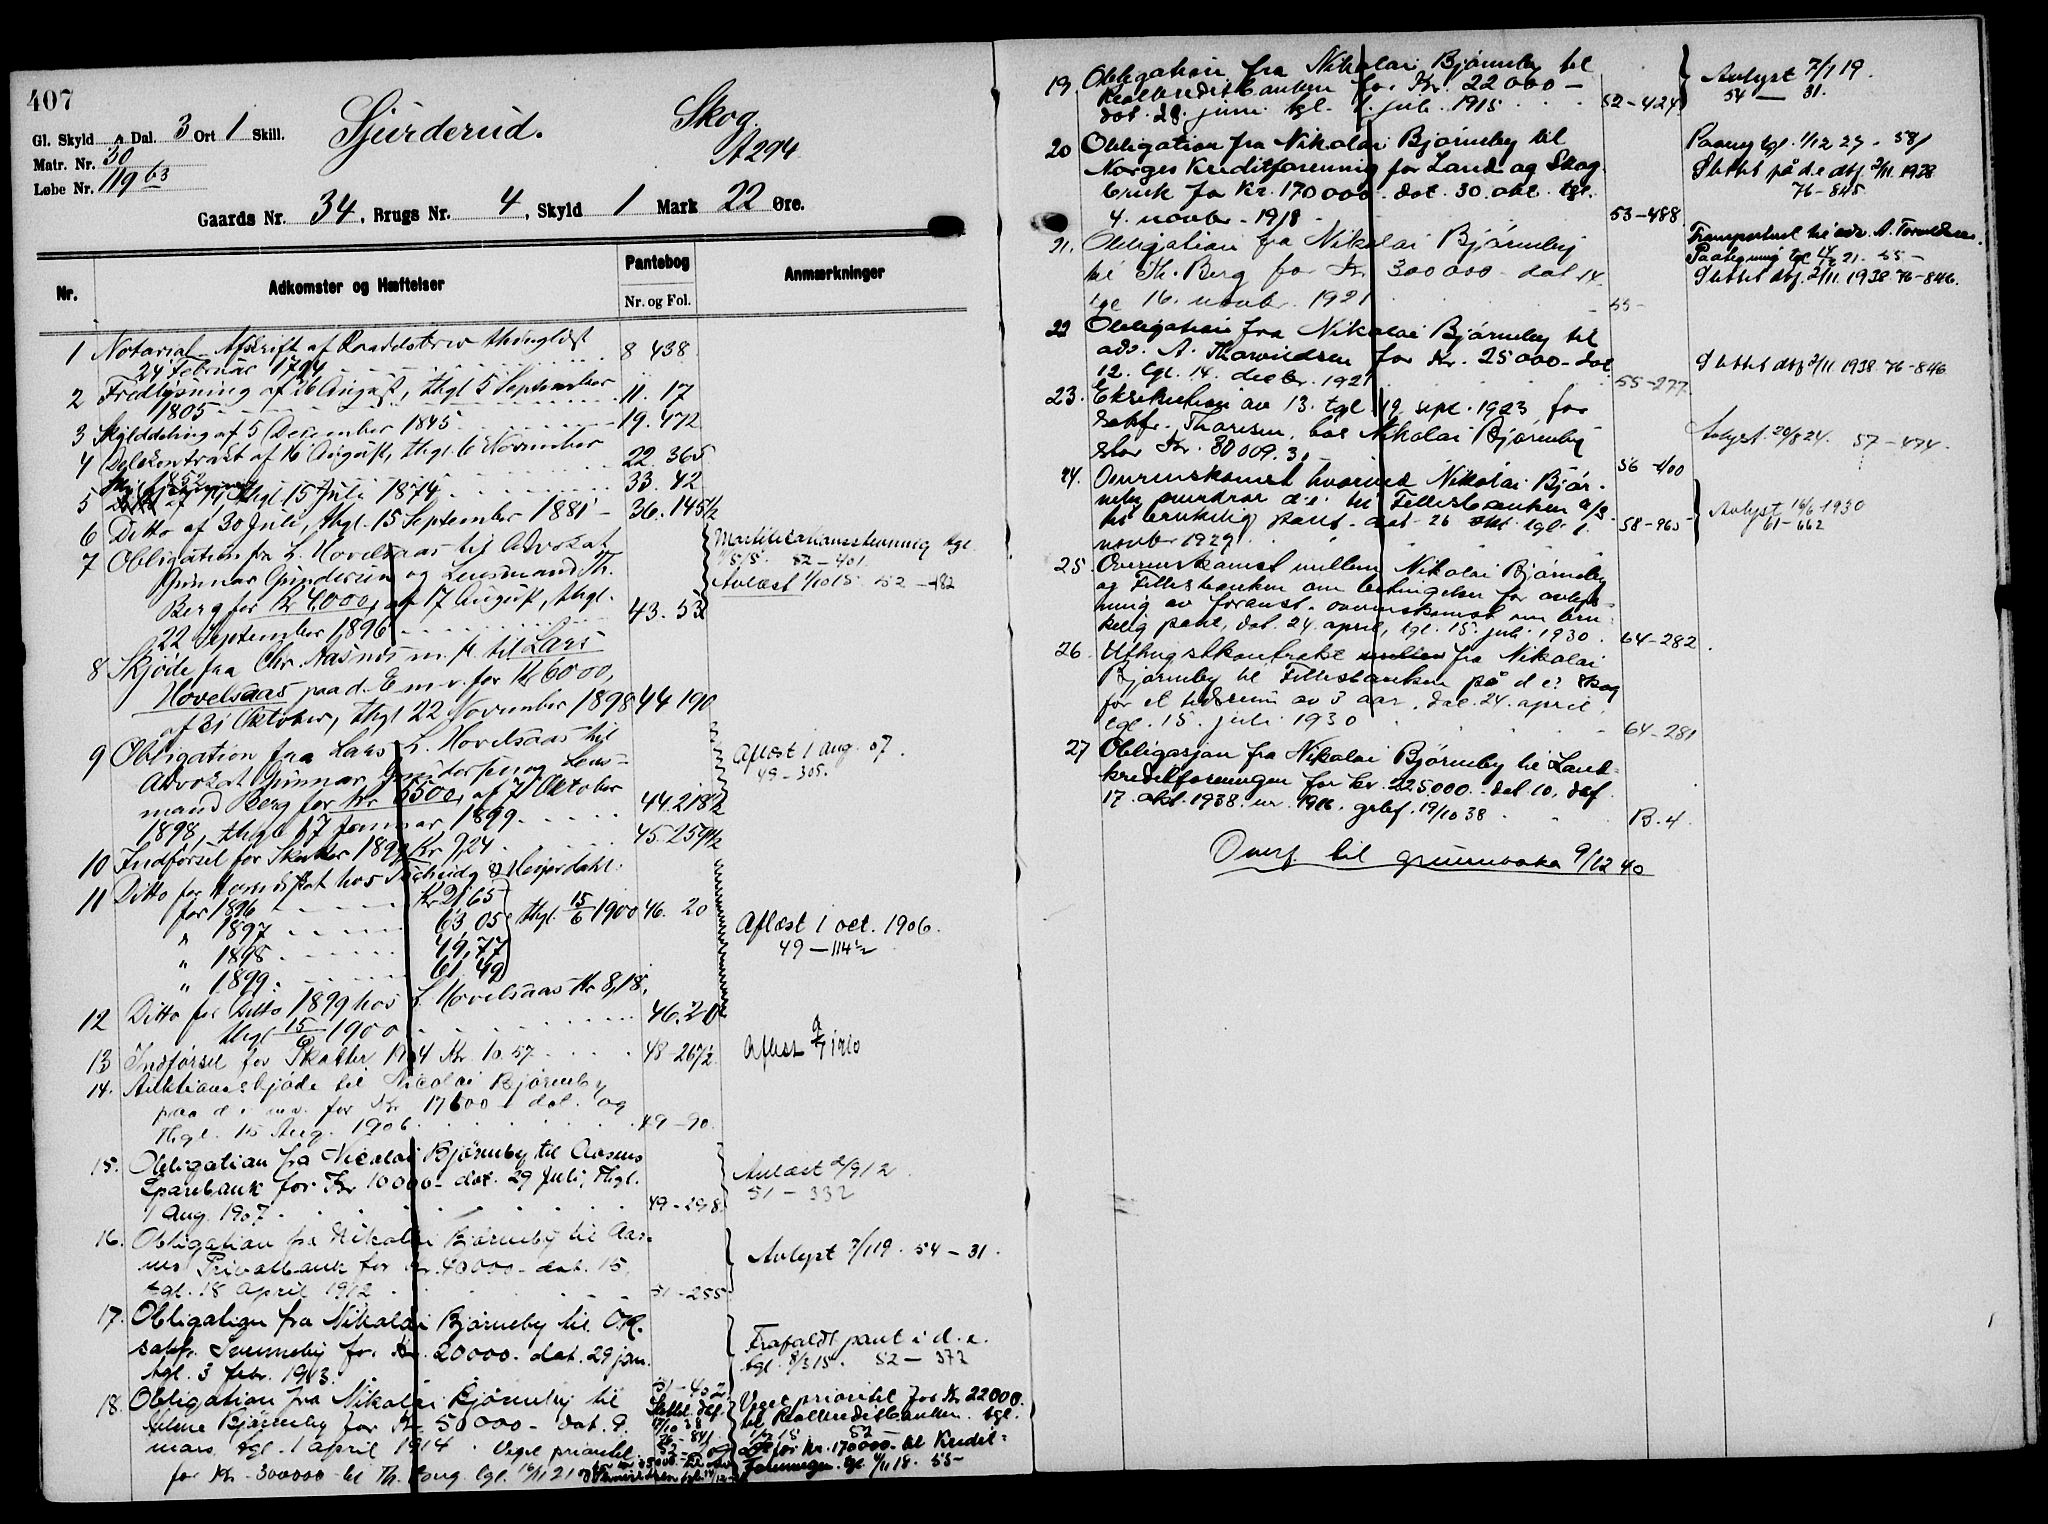 407
Gl. Skyld Dal. 3 Ort 1 Skill.
Matr. Nr. 30
Løbe Nr. 119 63
Sjurderud.
Skog.
A294
Gaards Nr. 34, Brugs Nr. 4, Skyld 1 Mark 22 Øre.
Nr.
Adkomster og Hæftelser
Pantebog
Nr. og Fol.
Anmærkninger
1 Notarial-Afskrift af thinglæst
24 Februar 8 438
2 Fredlysning af 26 August, thgl 5 September
1805 11. 17
3 Skylddeling af 5 December 1845 19. 472
4 Delekontrakt af 16 August, thgl. 6 November
1852 22. 365
5 thgl 15 Juli 1874 33. 42
6 Ditto af 30 Juli, thgl. 15 September 1881 36. 145½
7 Obligation fra L. Hovelsaas til Advokat
Gunnar Gundersen og Lensmand Th.
Berg for Kr 4000, af 17 August, thgl.
22 September 1896 43. 53
Mortifikationsstevning tgl.
52 – 401
Avlæst 1/10 15 52 – 482
8 Skjøde fra Chr. Næsnes m. fl. til Lars
Hovelsaas paa d. E m.v. for Kr 6000,
af 21 Oktober, thgl 22 November 1898 44 190
9 Obligation fra Lars L. Hovelsaas til
Advokat Gunnar Gundersen og Lens-
mand Berg for Kr 5500, af 7 Oktober
1898, thgl 17 Januar 1899 44. 218½
Aflæst 1 Aug. 07.
49 – 305.
10 Indførsel for Skatter 1899 Kr 9,24 45. 259½
11 Ditto for hos &
for 1896 Kr 21,65
" 1897 63,05
" 1898 49,77
" 1899 61,49
thgl. 15/6 1900 46. 20
Aflæst 1 oct. 1906.
49 – 114½
12 Ditto for Ditto 1899 hos L. Hovelsaas Kr 8,18,
thgl 15/6 1900 46. 20
13 Indførsel for Skatter 1904 Kr. 10.57 48 – 267½
Aflæst 1910
14. Auktionsskjøde til Nicolai Bjørneby
paa d e m.v. for Kr. 17600 dat. og
Thgl. 15 Aug. 1906 49 – 90.
15. Obligation fra Nicolai Bjørneby til Aasnes
Sparebank for Kr 10000 – dat. 29 Juli, Thgl.
1 Aug. 1907 49 – 298
Avlæst 2/9 12
51 – 332
16. Obligation fra Nikolai Bjørneby til Aas-
nes Privatbank for Kr. 40000 – dat. 15,
tgl. 18 April 1912 51 – 255
Avlyst 7/1 19. 54 – 31.
17. Obligation fra Nikolai Bjørneby til O.R.
sakf. for Kr. 20000 – dat. 29 jan.
tgl. 3 febr. 1913.
Frafaldt pant i d. e.
tgl. 8/3 15. 52 – 372
18. Obligation fra Nikolai Bjørneby til
Bjørneby for Kr. 50000 – dat. 9.
mars, tgl. 1 april 1914. Veget prioritet
for Kr. 300000 til Th. Berg. tgl. 16/11 21
Veget prioritet for Kr 22000
til Realkreditbanken tgl.
for Kr. 170000 – til Kredit-
foreningen tgl. 4/11 18. 53 –
19 Obligation fra Nikolai Bjørneby til
Realkreditbanken for Kr. 22000 –
dat. 28. juni tgl. 1. juli 1915 52 – 424
Avlyst 7/1 19.
54 – 31.
20 Obligation fra Nikolai Bjørneby til
Norges Kreditforening for Land og Skog
bruk for Kr. 170000 – dat. 30. okt. tgl.
4. novbr. 1918 53 – 488
tgl. 1/12 27 – 58/
Slettet på d.e dbf. 2/11. 1938
76 – 845
21. Obligation fra Nikolai Bjørneby
til Th. Berg for Kr. 300000 – dat 14.
tgl 16. novbr. 1921 55 –
Transportert til adv. A. Torvildsen.
Paategning tgl. 21. 55 –
Slettet dbf. 2/11. 1938 76 – 846.
22 Obligation fra Nikolai Bjørneby til
adv. A. Thorvildsen for Kr. 25000 – dat
12. tgl. 14. decbr. 1921 55 – 277
Slettet dbf 2/11 1938. 76 – 846
23. Eksekution av 13. tgl 19. sept. 1923 for
Thoresen, hos Nikolai Bjørneby
stor Kr. 30009.3 56 – 400
Avlyst 20/8 24. 57 – 474.
24. Overenskomst hvorved Nikolai Bjør-
neby d.e. til Fellesbanken A/S
til brukelig pant – dat. 26 okt. tgl. 1.
novbr 1927 58 – 965
Avlyst 16/6 1930
61 – 662
25. Overenskomst mellem Nikolai Bjørneby
og Fellesbanken om betingelser for avlys-
ning av foranst. overenskomst om bru-
kelig pant, dat. 24. april, tgl. 15. juli 1930. 64 – 282.
26. Uthugstkontrakt fra Nikolai
Bjørneby til Fellesbanken på d e: skog
for et tidsrum av 3 aar, dat. 24. april
tgl. 15. juli 1930 64 – 281
27 Obligasjon fra Nikolai Bjørneby til Land-
kreditforeningen for kr. 225000 – dat. 10, dbf.
17. okt. 1938. nr. 1916. grbf. 19/10 38 B. 4.
Overf. til grunnboka 9/12 40